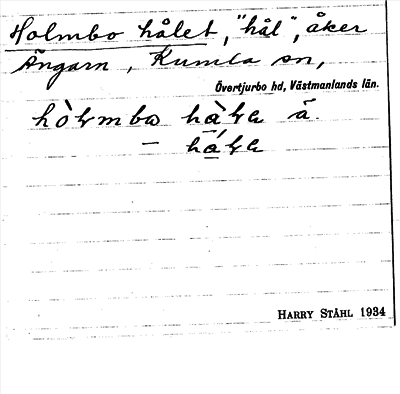 Holmbo hålet, "hål", åker
Ängarn, Kumla sn,
Övertjurbo hd, Västmanlands län.
å.
—
HARRY STÅHL 1934